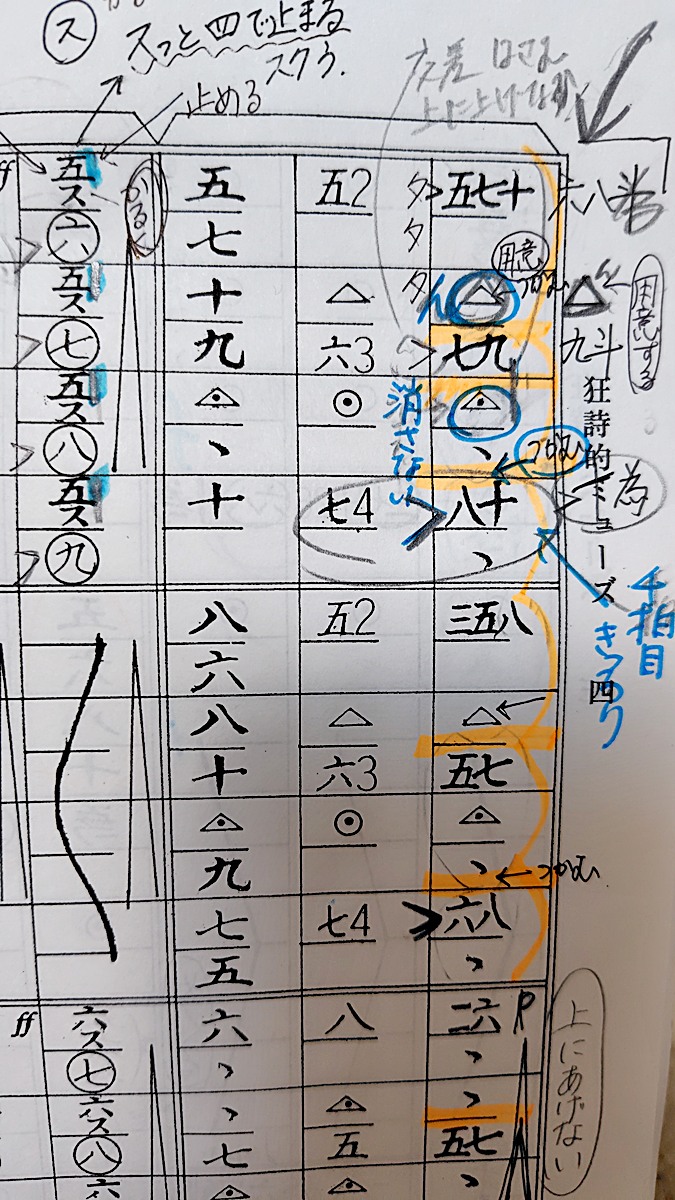 ス
スっと四で止まる
スクう.
止める
交差
上に上げない
かるく
用意
つかむ
消さない
つかむ
用意する
六八
△
九斗
為
狂詩的ミューズ 四
千拍目
きっちり
つかむ
上にあげない
五七十
△
七九
八十
ヽ
三五八
△
五七
ヽ
六八
ヽ
二六
ヽ
ヽ
五七
ヽ
タ
タ
タ
五2
△
六3
⊙
七4
五2
△
六3
⊙
七4
八
五
五
七
十
九
ヽ
十
八
六
八
十
九
七
五
六
ヽ
ヽ
七
五ス
六
五ス
七
五ス
八
五ス
九
ff
六ス
七
六ス
八
六
ff
P